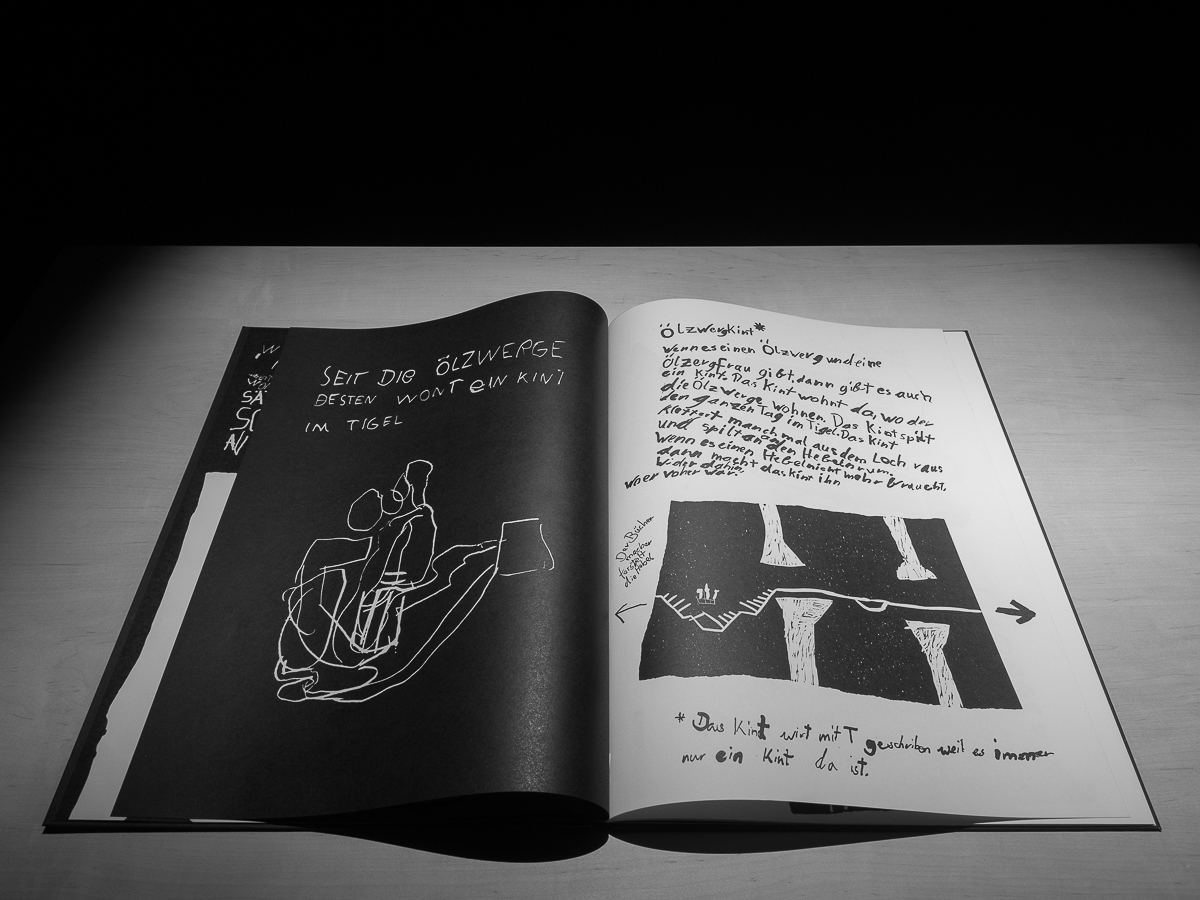 SÄ
SEIT DIE ÖLZWERGE
BESTEN WONT eIN KINT
IM TIGEL
Ölzwergkint*
wenn es einen Ölzverg und eine
ÖlzergFrau gibt, dann gibt es auch
ein Kint. Das Kint wohnt da, wo der
die Ölzwerge wohnen. Das Kint spilt
den ganzen Tag im Tigel. Das Kint
klettert manchmal aus dem Loch raus
und spilt an den Hebeln rum.
wenn es einen Hebel nicht mehr braucht,
dann macht das kint ihn
wider dahin
woer voher war.
Der Bücher
macher
ferstelt
die Hebel
* Das Kint wirt mit T geschriben weil es immer
nur ein Kint da ist.